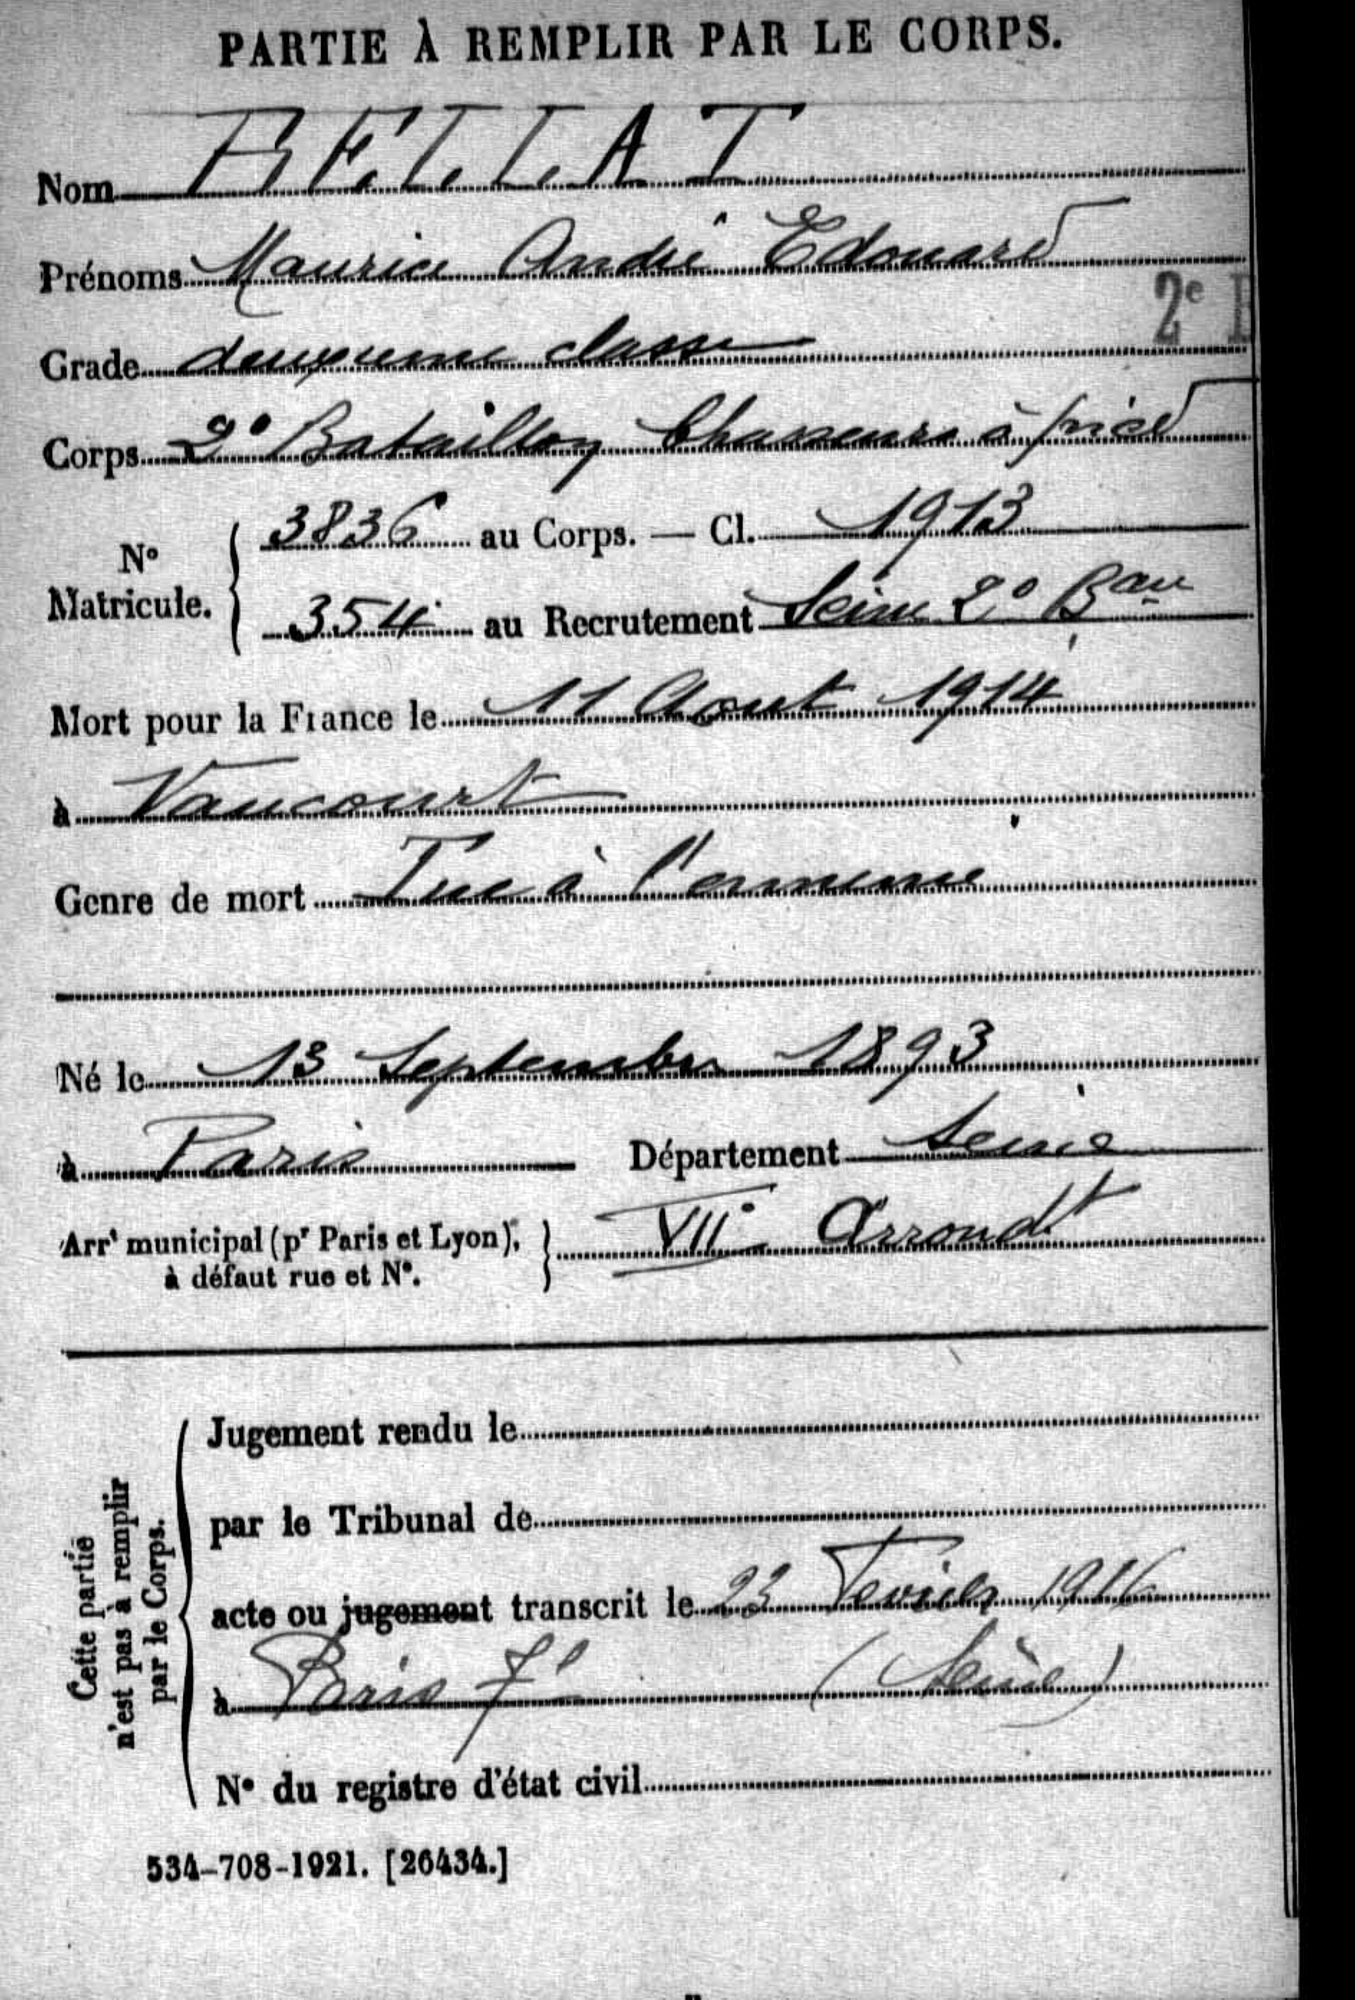 PARTIE À REMPLIR PAR LE CORPS.
Nom BELLAT
Prénoms Maurice André Edouard
2e B
Grade deuxieme classe
Corps 2e Bataillon Chasseurs à pied
N° Matricule. { 3836 au Corps. — Cl. 1913
354 au Recrutement Seine 2e Bau
Mort pour la France le 11 Aout 1914
à Vaucourt
Genre de mort Tué à l'ennemi
Né le 13 Septembre 1893
à Paris Département Seine
Arrt municipal (pr Paris et Lyon), } VIIe Arrondt
à défaut rue et N°.
Cette partie n'est pas à remplir par le Corps.
Jugement rendu le
par le Tribunal de
acte ou jugement transcrit le 23 Fevrier 1916
à Paris 7e (Seine)
N° du registre d'état civil
534-708-1921. [26434.]